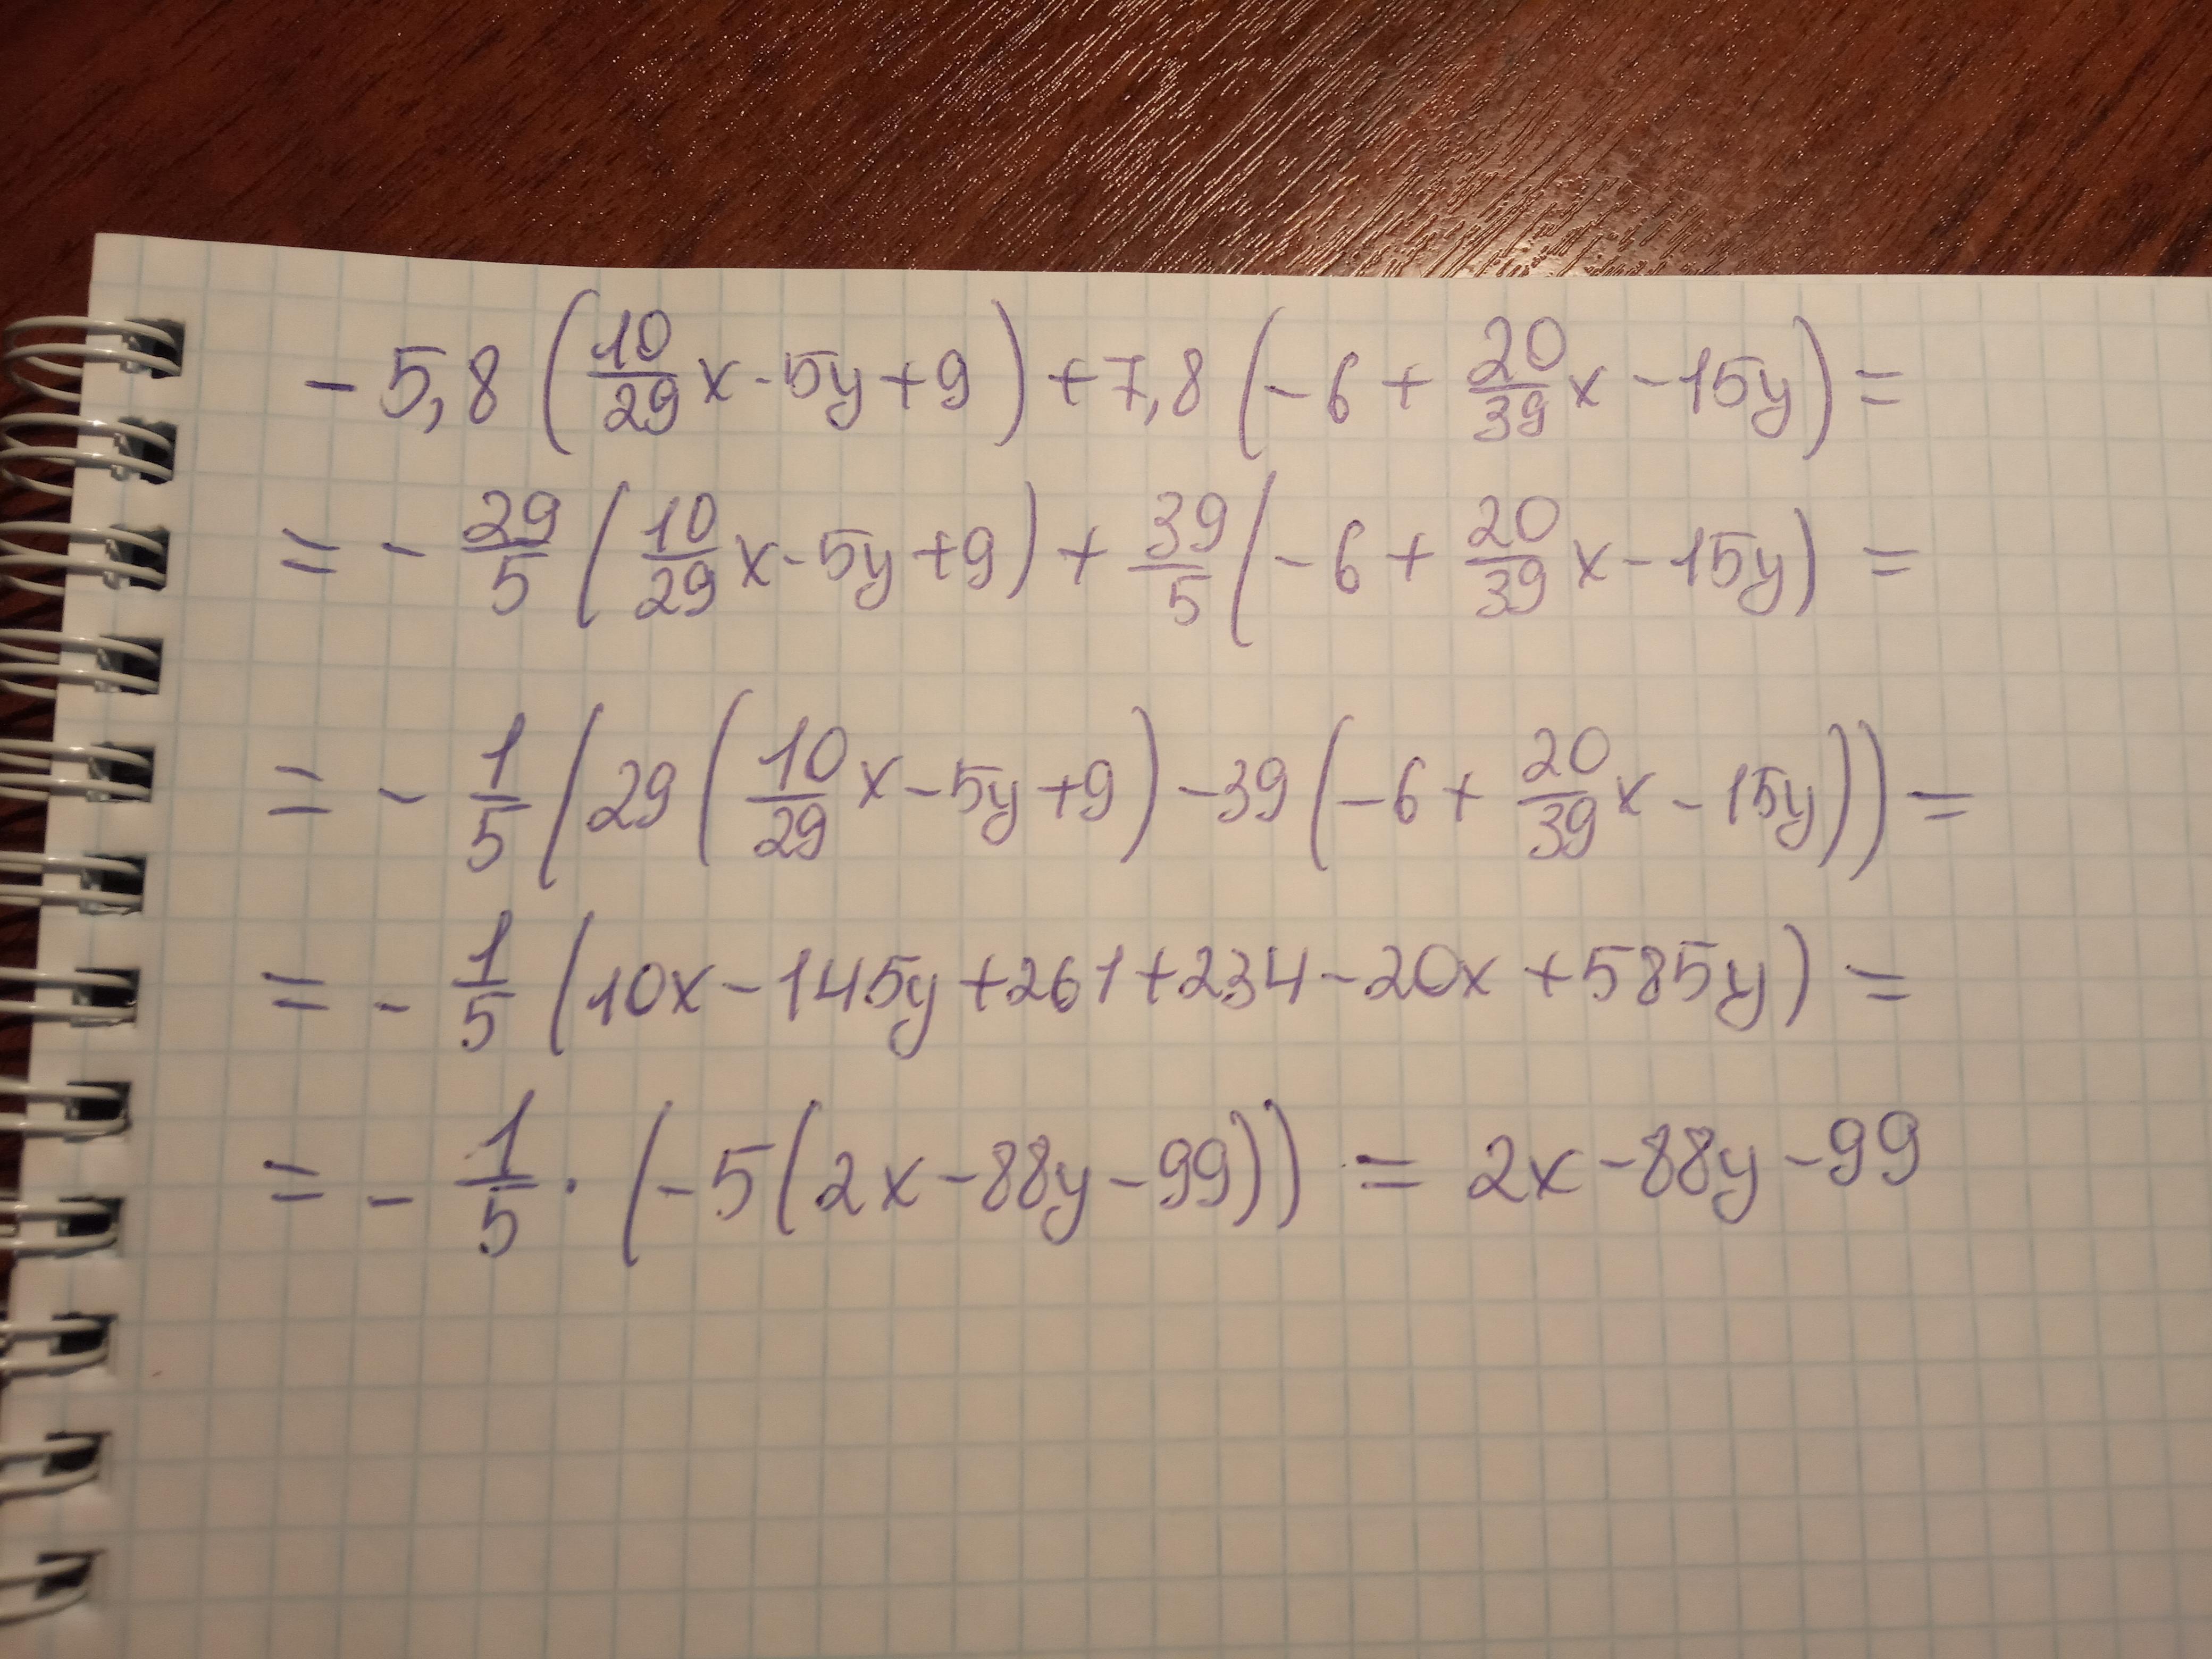 - 5,8 (10/29 x - 5y + 9) + 7,8 (- 6 + 20/39 x - 15y) =
= - 29/5 (10/29 x - 5y + 9) + 39/5 (- 6 + 20/39 x - 15y) =
= - 1/5 (29 (10/29 x - 5y + 9) - 39 (- 6 + 20/39 x - 15y)) =
= - 1/5 (10x - 145y + 261 + 234 - 20x + 585y) =
= - 1/5 · (- 5 (2x - 88y - 99)) = 2x - 88y - 99